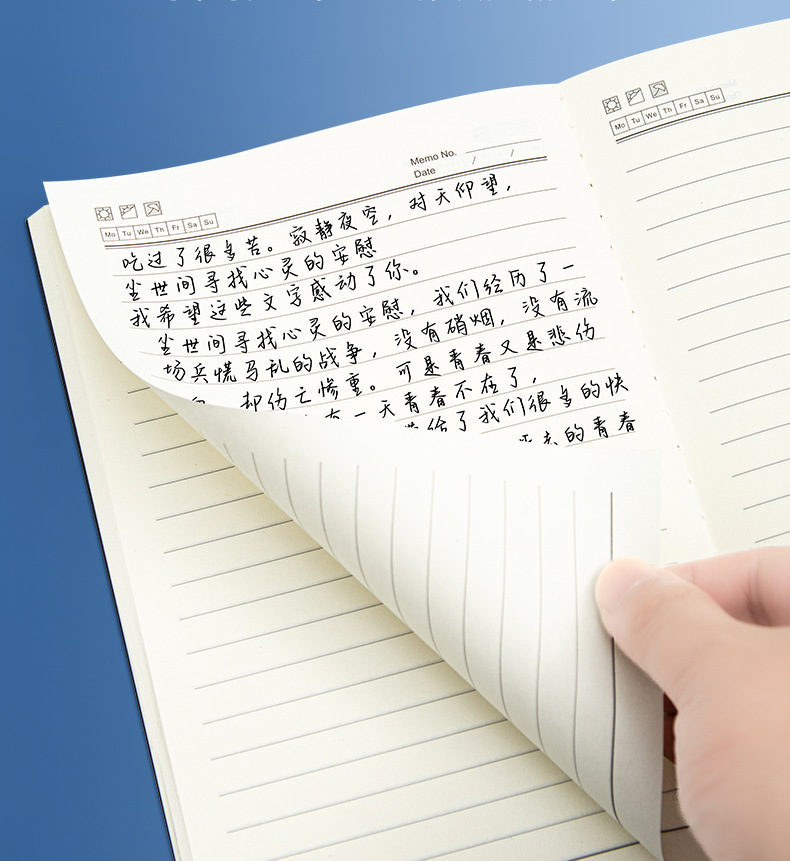 Memo No.
Date / /
Mo Tu We Th Fr Sa Su
吃过了很多苦。寂静夜空，对天仰望，
尘世间寻找心灵的安慰
我希望这些文字感动了你。
尘世间寻找心灵的安慰，我们经历了一
场兵慌马乱的战争，没有硝烟，没有流
却伤亡惨重。可是青春又是悲伤
一天青春不在了，
给了我们很多的快
的青春
Mo Tu We Th Fr Sa Su